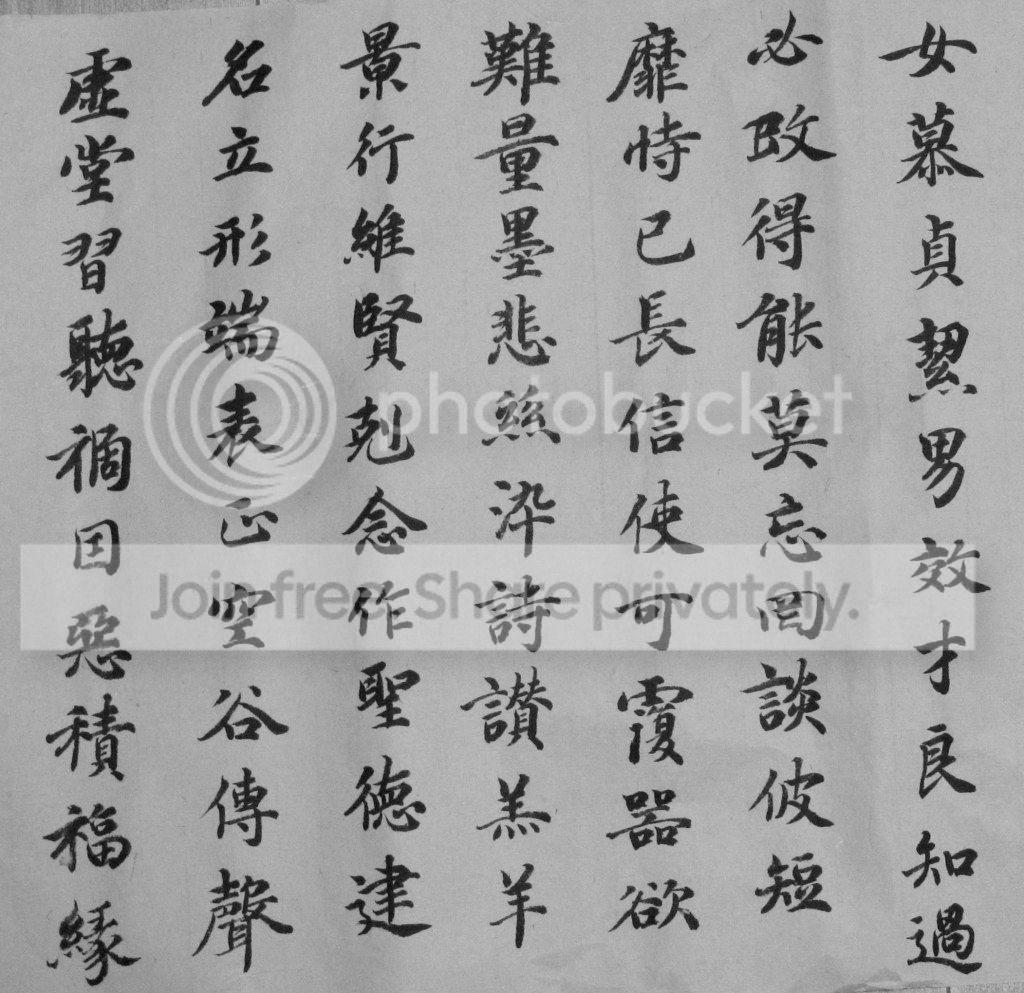 女慕貞絜男效才良知過
必改得能莫忘罔談彼短
靡恃已長信使可覆器欲
難量墨悲絲染詩讚羔羊
景行維賢剋念作聖德建
名立形端表正空谷傳聲
虛堂習聽禍因惡積福緣
photobucket
Join free. Share privately.